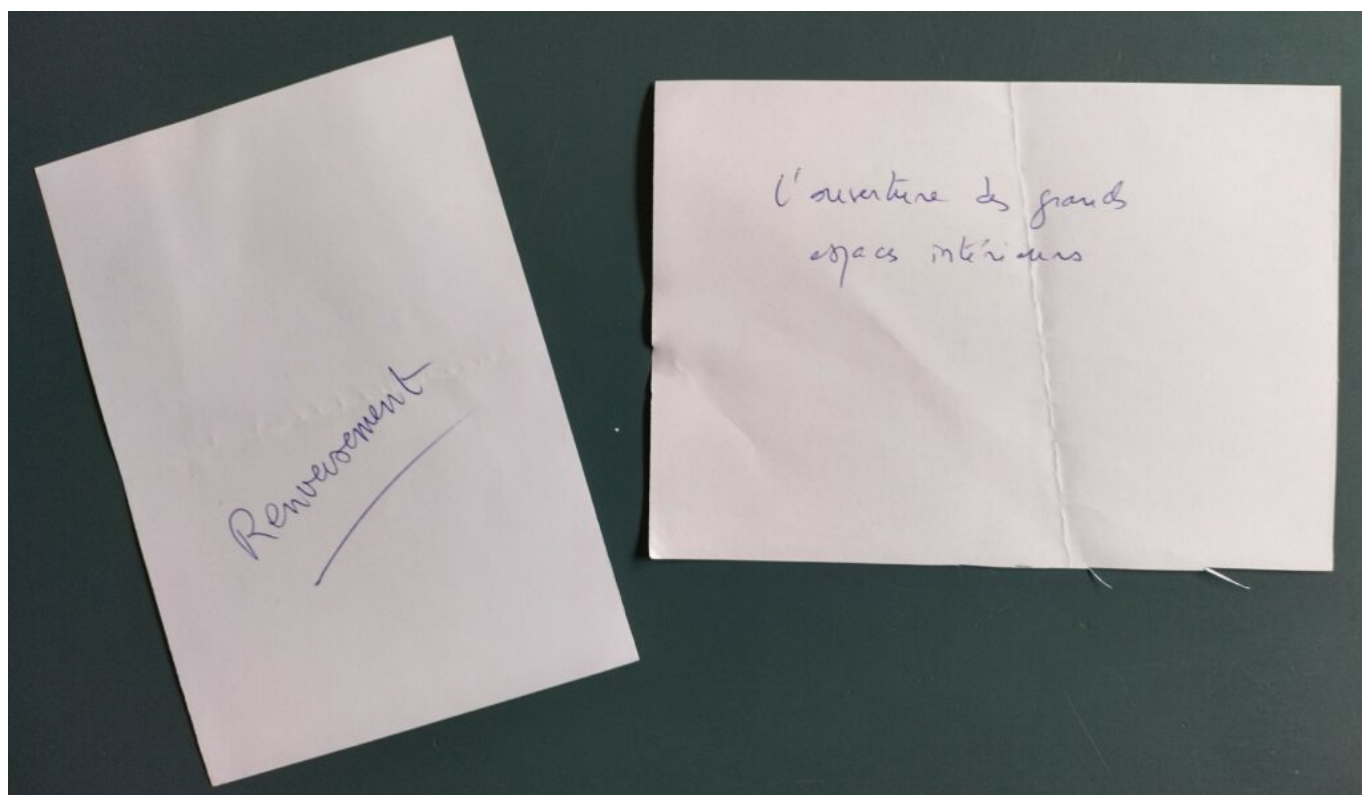 Renversement
l'ouverture des grands
espaces intérieurs